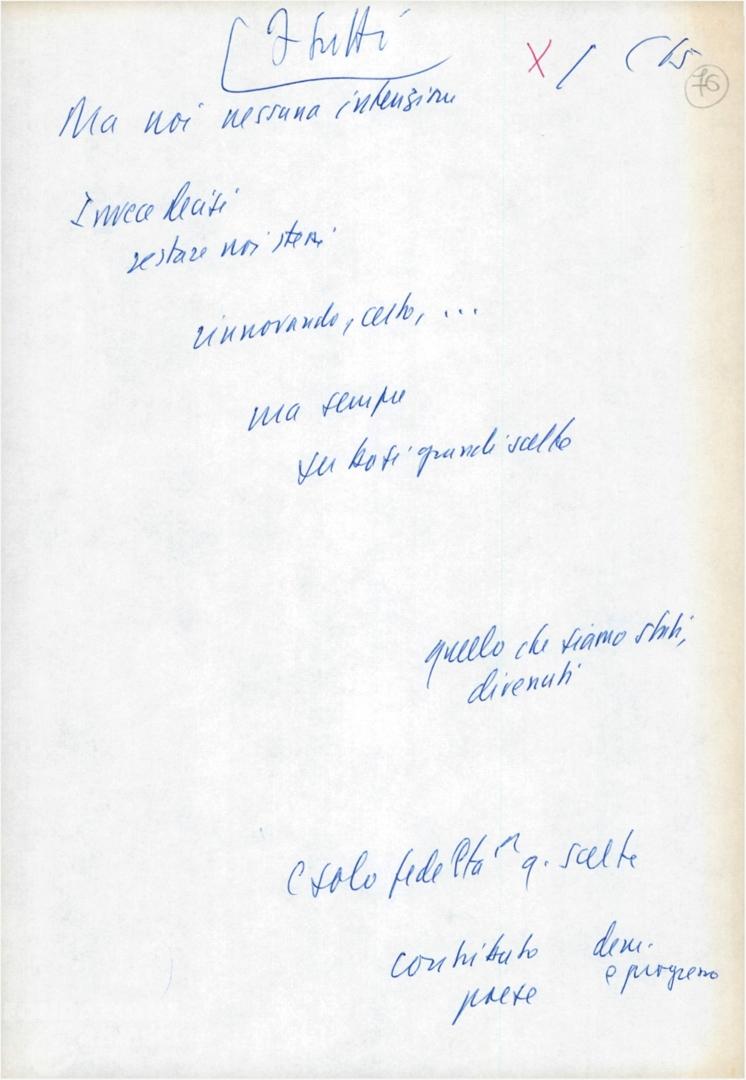 I tutti
X / ( 15
76
Ma noi nessuna intenzione
Invece decisi
restare noi stessi
rinnovando, certo, ...
ma sempre
su basi grandi scelte
quello che siamo stati,
divenuti
( solo fedeltà q. scelte
contributo dem.
paese e progresso